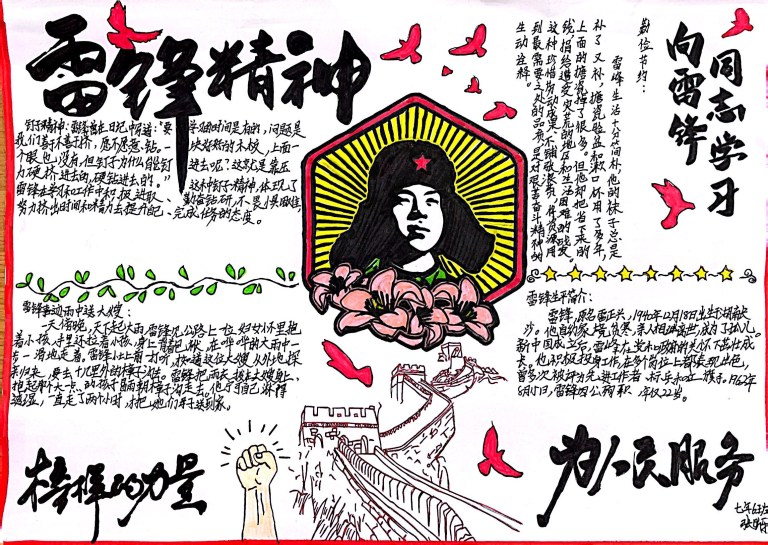 雷锋精神
钉子精神：雷锋曾在日记中写道："要学习的时间是有的，问题是
我们善不善于挤，愿不愿意钻，一块好好的木板，上面一
个眼也没有，但钉子为什么能钉进去呢？这就是靠压
力硬挤进去的，硬钻进去的。"这种钉子精神，体现了
雷锋在学习和工作中积极进取、勤奋钻研、不畏惧艰难，
努力挤出时间和精力去提升自己、完成任务的态度。
勤俭节约：
雷锋生活十分简朴，他的袜子总是
补了又补，搪瓷脸盆和漱口杯用了多年，
上面的搪瓷掉了很多，但他却把省下来的
钱捐给遭受灾荒的地区和生活困难的战友。
这种珍惜劳动成果、不铺张浪费，将资源用
到最需要之处的品质，是对艰苦奋斗精神的
生动诠释。
向雷锋
同志学习
雷锋事迹雨中送大嫂：
一天傍晚，天下起大雨，雷锋见公路上一位妇女怀里抱
着小孩，手里还拉着小孩，身上背着包袱，在哗哗的大雨中一
步一滑地走着。雷锋上前一打听，知道这位大嫂从外地探
亲归来，要去十几里外的樟子沟。雷锋把雨衣披在大嫂身上，
抱起那个大一点的孩子冒雨朝樟子沟走去。他宁可自己淋得
透湿，一直走了两个小时，才把她们母子送到家。
雷锋生平简介：
雷锋，原名雷正兴，1940年12月18日出生于湖南长
沙。他自幼家境贫寒，亲人相继离世，成了孤儿。
新中国成立后，雷锋在党和政府的关怀下茁壮成
长。也积极投身工作，在多个岗位上都表现出色，
曾多次被评为先进工作者、标兵和红旗手。1962年
8月15日，雷锋因公殉职，年仅22岁。
榜样的力量
为人民服务
七年6班